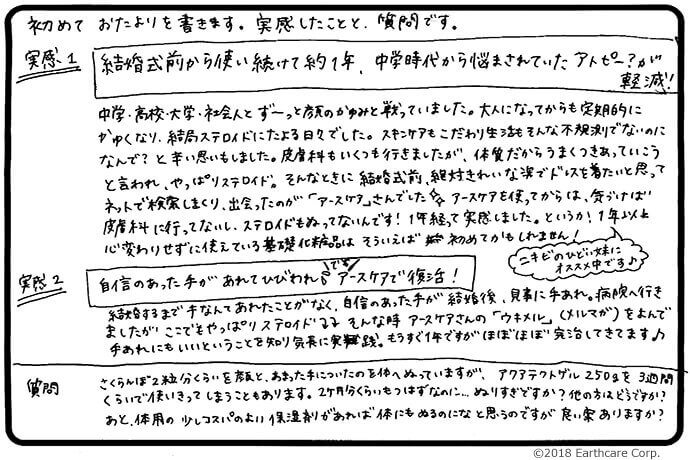 初めて おたよりを書きます。実感したことと、質問です。
実感1 結婚式前から使い続けて約1年、中学時代から悩まされていたアトピー?が
軽減!
中学・高校・大学・社会人とず〜っと顔のかゆみと戦っていました。大人になってからも定期的に
かゆくなり、結局ステロイドにたよる日々でした。スキンケアもこだわり生活もそんな不規則でないのに
なんで?と辛い思いもしました。皮膚科もいくつも行きましたが、体質だからうまくつきあっていこう
と言われ、やっぱりステロイド。そんなときに結婚式前、絶対きれいな肌でドレスを着たいと思って
ネットで検索しまくり、出会ったのが「アースケア」さんでした アースケアを使ってからは、気づけば
皮膚科に行ってないし、ステロイドもぬってないんです!1年経って実感しました。というか!1年以上
心変わりせずに使えている基礎化粧品は そういえば 初めてかもしれません!
ニキビのひどい妹に
オススメ中です♪
実感2 自信のあった手があれてひびわれ でも アースケアで復活!
結婚するまで手なんてあれたことがなく、自信のあった手が結婚後、見事に手あれ。病院へ行き
ましたが ここでもやっぱりステロイド そんな時 アースケアさんの「ウキメル」(メルマガ)をよんで
手あれにもいいということを知り気長に実践。もうすぐ1年ですがほぼほぼ完治してきてます♪
質問 さくらんぼ2粒分くらいを顔と、あまった手についたのを体へぬっていますが、アクアテクトゲル250gを3週間
くらいで使いきってしまうこともあります。2ヶ月分くらいもつはずなのに…ぬりすぎですか?他の方はどうですか?
あと、体用の少しコスパのよい保湿剤があれば体にもぬるのになと思うのですが良い案ありますか?
©2018 Earthcare Corp.